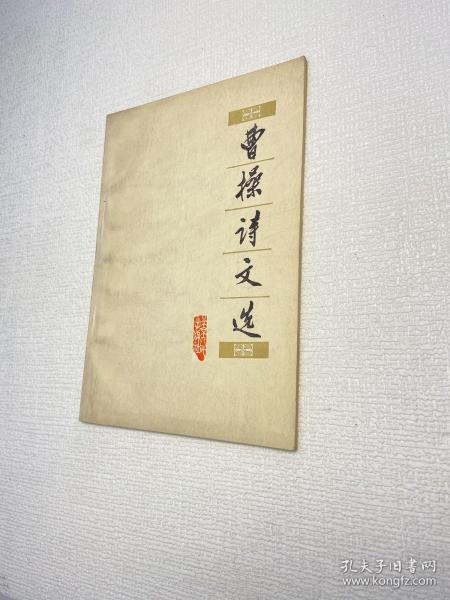 曹操诗文选
孔夫子旧书网
www.kongfz.com